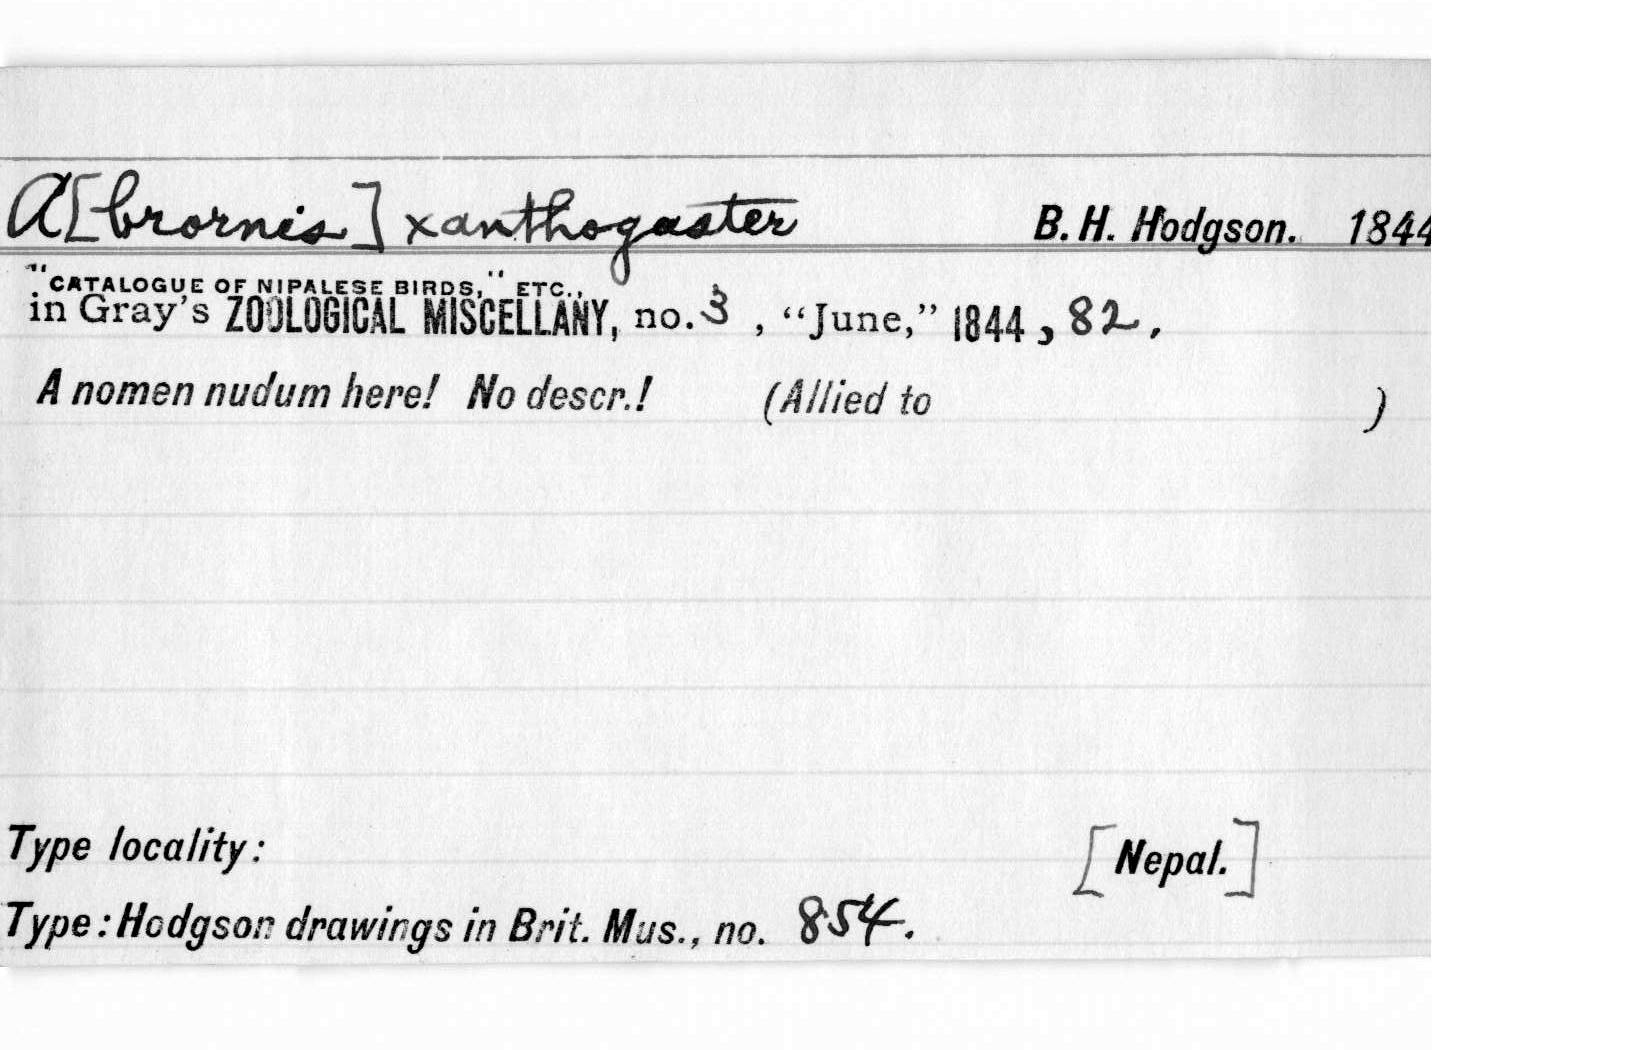 A[brornis] xanthogaster B. H. Hodgson. 1844
"CATALOGUE OF NIPALESE BIRDS," ETC.,
in Gray's ZOOLOGICAL MISCELLANY, no. 3, “June,” 1844, 82.
A nomen nudum here! No descr.! (Allied to )
Type locality: [Nepal.]
Type: Hodgson drawings in Brit. Mus., no. 854.